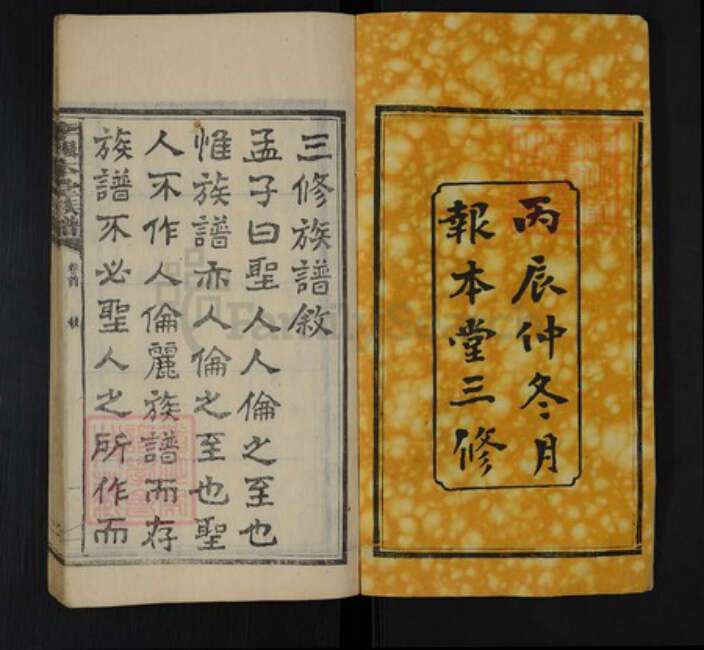 丙辰仲冬月
報本堂三修
三修族譜敘
孟子曰聖人人倫之至也
惟族譜亦人倫之至也聖
人不作人倫麗族譜而存
族譜不必聖人之所作而
族譜
卷首
敘